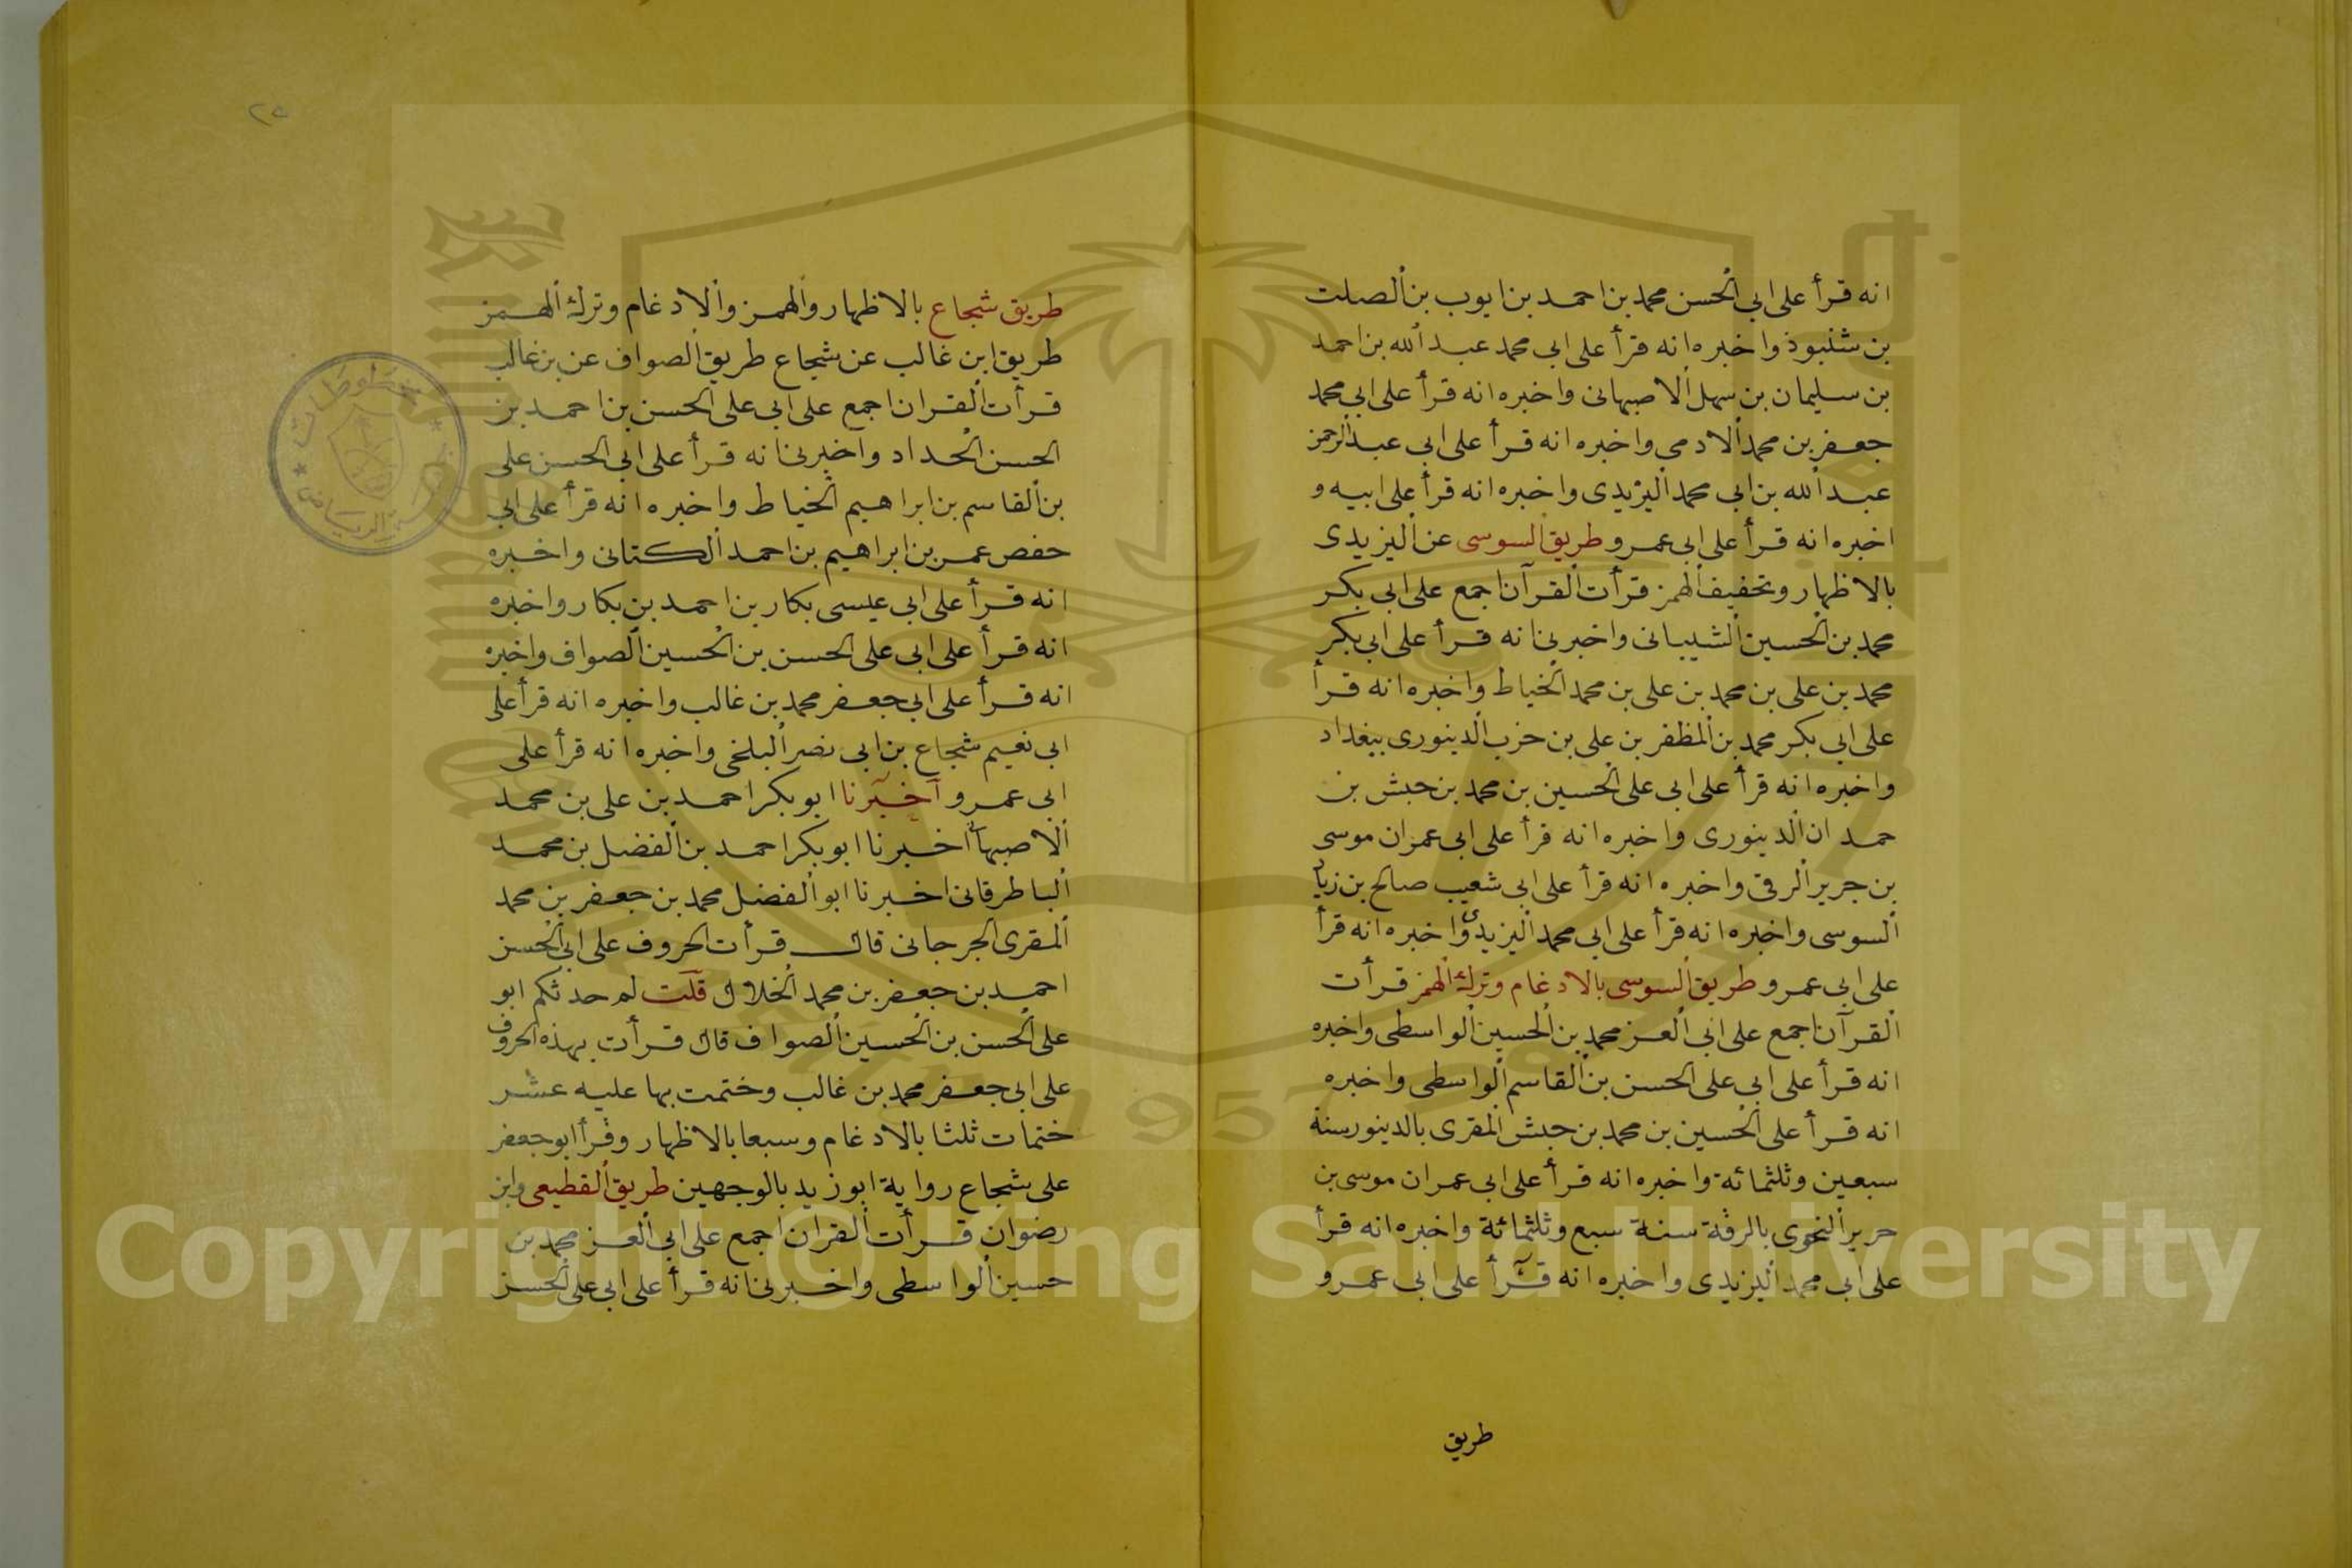 انه قرأ على ابي الحسن محمد بن احمد بن ايوب بن الصلت
بن شنبوذ واخبره انه قرأ على ابي محمد عبد الله بن احمد
بن سليمان بن سهل الاصبهانى واخبره انه قرأ على ابي محمد
جعفر بن محمد الادمى واخبره انه قرأ على ابي عبد الرحمن
عبد الله بن ابى محمد اليزيدى واخبره انه قرأ على ابيه و
اخبره انه قرأ على ابى عمرو طريق السوسى عن اليزيدى
بالاظهار وتخفيف الهمز قرأت القرآن اجمع على ابى بكر
محمد بن الحسين الشيبانى واخبرنى انه قرأ على ابى بكر
محمد بن على بن محمد بن على بن محمد الخياط واخبره انه قرأ
على ابى بكر محمد بن المظفر بن على بن حرب الدينورى ببغداد
واخبره انه قرأ على ابى على الحسين بن محمد بن حبش بن
حمدان الدينورى واخبره انه قرأ على ابى عمران موسى
بن جرير الرقى واخبره انه قرأ على ابى شعيب صالح بن زياد
السوسى واخبره انه قرأ على ابى محمد اليزيدى واخبره انه قرأ
على ابى عمرو طريق السوسى بالادغام وترك الهمز قرأت
القرآن اجمع على ابى العز محمد بن الحسين الواسطى واخبره
انه قرأ على ابى على الحسن بن القاسم الواسطى واخبره
انه قرأ على الحسين بن محمد بن حبش المقرى بالدينور سنة
سبعين وثلثمائة واخبره انه قرأ على ابى عمران موسى بن
جرير النحوى بالرقة سنة سبع وثلثمائة واخبره انه قرأ
على ابى محمد اليزيدى واخبره انه قرأ على ابى عمرو
طريق
٢٥
طريق شجاع بالاظهار والهمز والادغام وترك الهمز
طريق ابن غالب عن شجاع طريق الصواف عن بن غالب
قرأت القران اجمع على ابى على الحسن بن احمد بن
الحسن الحداد واخبرنى انه قرأ على ابى الحسن على
بن القاسم بن ابراهيم الخياط واخبره انه قرأ على ابى
حفص عمر بن ابراهيم بن احمد الكتانى واخبره
انه قرأ على ابى عيسى بكار بن احمد بن بكار واخبره
انه قرأ على ابى على الحسن بن الحسين الصواف واخبره
انه قرأ على ابى جعفر محمد بن غالب واخبره انه قرأ على
ابى نعيم شجاع بن ابى نصر البلخى واخبره انه قرأ على
ابى عمرو اخبرنا ابو بكر احمد بن على بن محمد
الاصبهانى اخبرنا ابو بكر احمد بن الفضل بن محمد
الباطرقانى اخبرنا ابو الفضل محمد بن جعفر بن محمد
المقرى الجرجانى قال قرأت الحروف على ابى الحسن
احمد بن جعفر بن محمد الخلال قلت له حدثكم ابو
على الحسن بن الحسين الصواف قال قرأت بهذه الحروف
على ابى جعفر محمد بن غالب وختمت بها عليه عشر
ختمات ثلثا بالادغام وسبعا بالاظهار وقرأ ابو جعفر
على شجاع رواية ابو زيد بالوجهين طريق القطيعى وابن
رضوان قرأت القران اجمع على ابى العز محمد بن
حسين الواسطى واخبرنى انه قرأ على ابى على الحسن
Copyright © King Saud University
1957